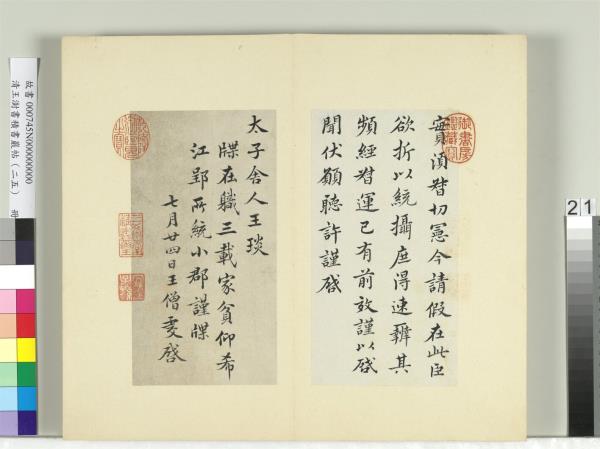 實須督切憲今請假在此臣
欲折以統攝庶得速辦其
頻經督運已有前效謹以啓
聞伏願聽許謹啓
太子舍人王琰
牒在職三載家貧仰希
江郢所統小郡謹牒
七月廿四日王僧虔啓
故書 000745N000000000
清王澍書積書巖帖(二五) 冊
21